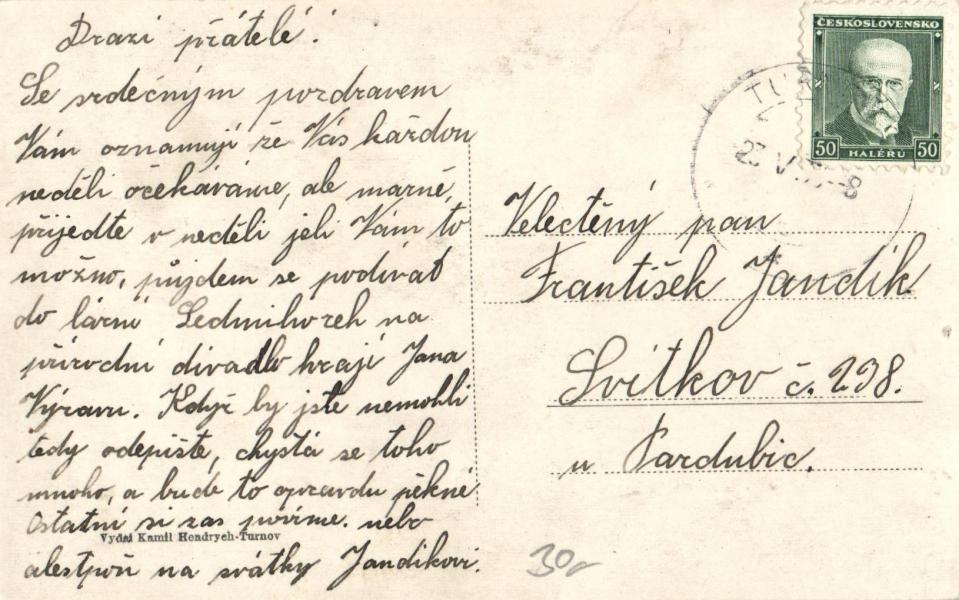 Drazí přátelé!
Se srdečným pozdravem
Vám oznamuji že Vás každou
neděli očekáváme, ale marně,
přijedte v neděli jeli Vám to
možno, půjdem se podívat
do lázní Sedmihorek na
přírodní divadlo hrají Jana
Výravu. Když by jste nemohli
tedy odepište, chystá se toho
mnoho, a bude to opravdu pěkné
Ostatní si zas povíme. nebo
alespoň na svátky Jandíkovi.
Vydal Kamil Hendrych-Turnov
ČESKOSLOVENSKO
50 HALÉŘŮ 50
Velectěný pan
František Jandík
Svítkov č. 298.
u Pardubic.
30,-